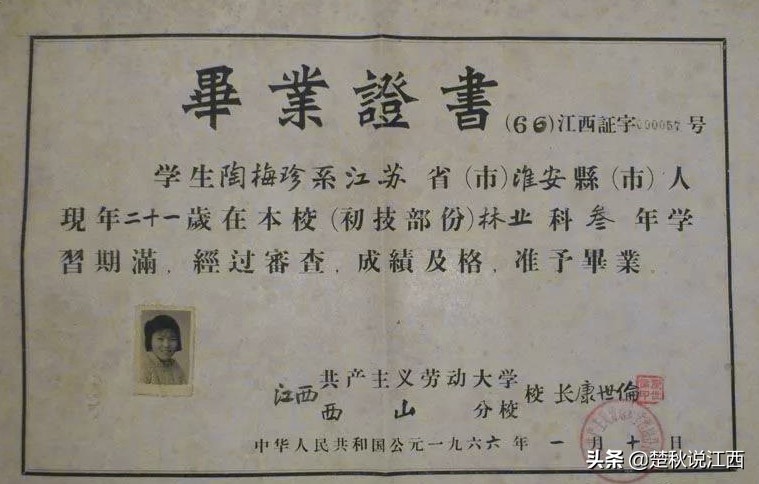 畢業證書
(66)江西証字000057号
学生陶梅珍系江苏省(市)淮安縣(市)人
現年二十一歲在本校(初技部份)林业科叁年学
習期滿.經过審查.成績及格.准予畢業.
江西共产主义劳动大学
西山分校
校长康世倫
中华人民共和国公元一九六六年一月十日
头条@楚秋说江西